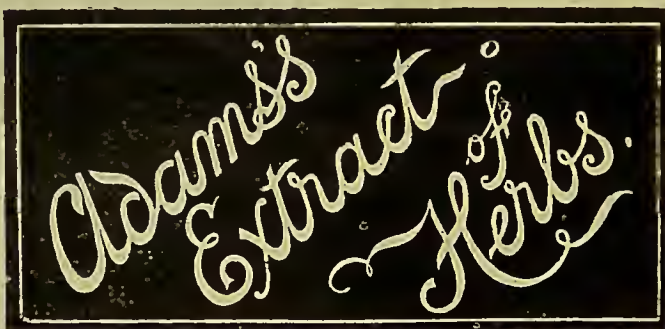 Adams's
Extract
of
Herbs.